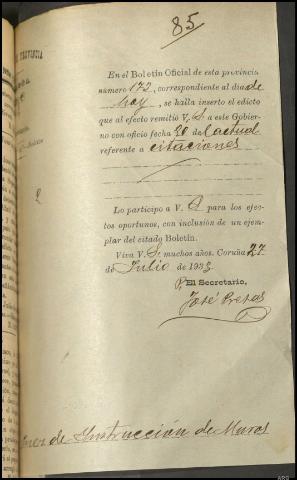 85
En el Boletín Oficial de esta provincia
número 172, correspondiente al día de
hoy, se halla inserto el edicto
que al efecto remitió V. S. a este Gobier-
no con oficio fecha 20 del actual
referente a citaciones
Lo participo a V. S. para los efec-
tos oportunos, con inclusión de un ejem-
plar del citado Boletín.
Viva V. S. muchos años. Coruña 27
de Julio de 1933
El Secretario,
José Presas
Juez de Instrucción de Muros